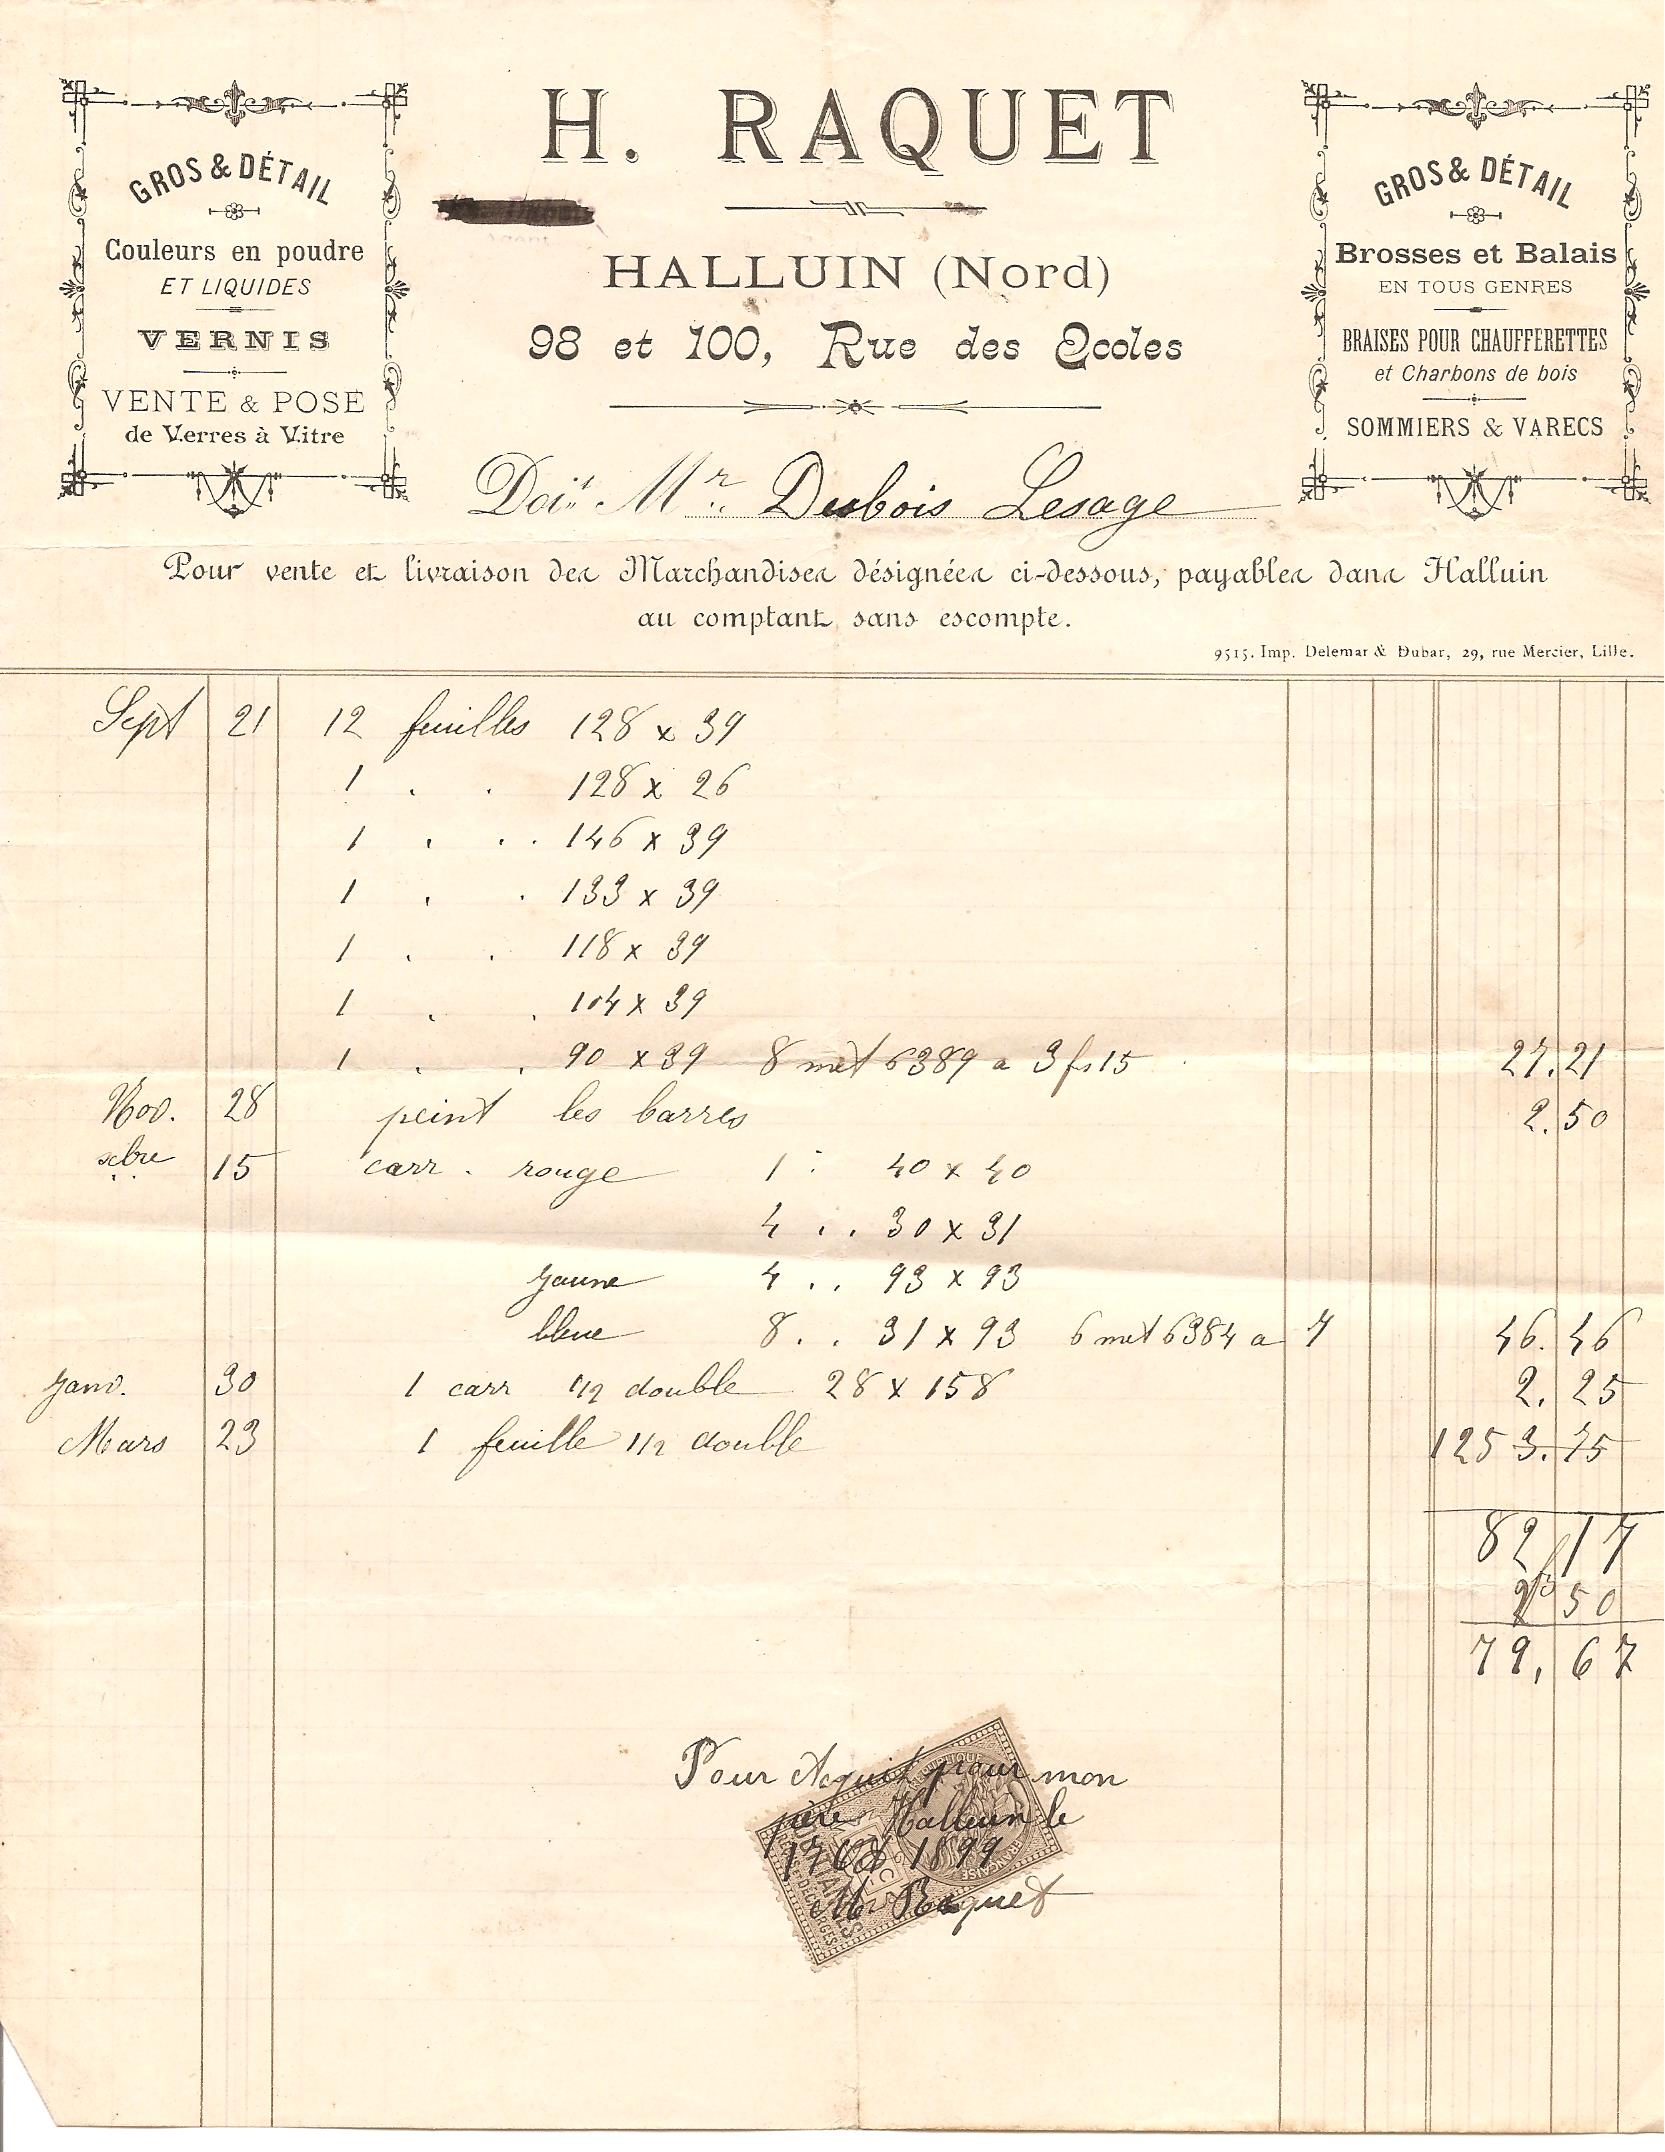 H. RAQUET
HALLUIN (Nord)
98 et 100, Rue des Ecoles
GROS & DÉTAIL
Couleurs en poudre
ET LIQUIDES
VERNIS
VENTE & POSE
de Verres à Vitre
GROS & DÉTAIL
Brosses et Balais
EN TOUS GENRES
BRAISES POUR CHAUFFERETTES
et Charbons de bois
SOMMIERS & VARECS
Doit Mr Dubois Lesage
Pour vente et livraison des Marchandises désignées ci-dessous, payables dans Halluin
au comptant sans escompte.
9515. Imp. Delemar & Dubar, 29, rue Mercier, Lille.
Sept 21 12 feuilles 128 x 39
1 . . 128 x 26
1 . . . 146 x 39
1 . . 133 x 39
1 . . 118 x 39
1 . . 104 x 39
1 . . 90 x 39 8 met 6389 a 3 fs 15 27.21
Nov. 28 peint les barres 2.50
15 carr. rouge 1 40 x 40
4 . . 30 x 31
jaune 4 . . 93 x 93
bleue 8 . . 31 x 93 6 met 6384 a 7 46.46
Janv. 30 1 carr 1/2 double 28 x 158 2.25
Mars 23 1 feuille 1/2 double 125 3.75
82 17
2 50
79,67
Pour Acquit pour mon
père Halluin le
1899
M Raquet